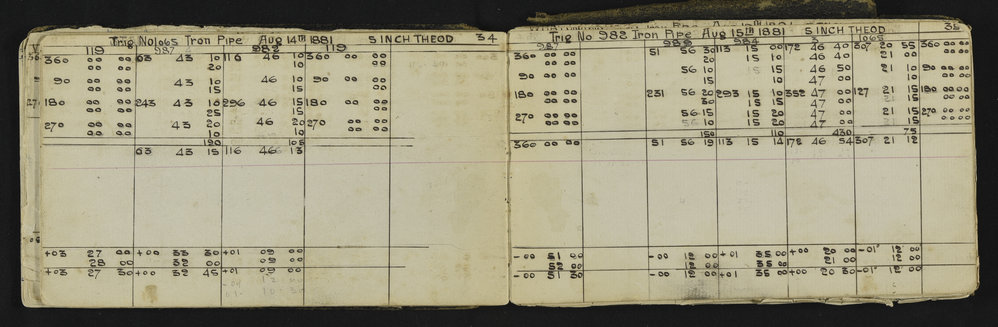 Trig No 1065 Iron Pipe Aug 14TH 1881 5 INCH THEOD 34
119 987 982 119
360 00 00 63 43 10 116 46 10 360 00 00
00 00 20 10 00 00
90 00 00 43 10 46 10 90 00 00
00 00 15 15 00 00
180 00 00 243 43 10 296 46 15 180 00 00
00 00 25 15 00 00
270 00 00 43 20 46 20 270 00 00
00 00 10 10 00 00
120 105
63 43 15 116 46 13
+03 27 00 +00 33 30 +01 09 00
28 00 32 00 09 00
+03 27 30 +00 32 45 +01 09 00
Trig No 982 Iron Pipe Aug 15TH 1881 5 INCH THEOD 35
987 984 3 1065
360 00 00 51 56 30 113 15 10 172 46 40 307 20 55 360 00 00
00 00 20 15 46 40 21 00 00 00
90 00 00 56 10 15 15 46 50 21 10 90 00 00
00 00 15 10 47 00 10 00 00
180 00 00 231 56 20 293 15 10 352 47 00 127 21 15 180 00 00
00 00 30 15 47 00 15 00 00
270 00 00 56 15 15 20 47 00 21 15 270 00 00
00 00 56 10 15 20 47 00 15 00 00
150 110 430 75
360 00 00 51 56 19 113 15 14 172 46 54 307 21 12
-00 51 00 -00 12 00 +01 35 00 +00 20 00 -01 12 00
52 00 12 00 35 00 21 00 12 00
-00 51 30 -00 12 00 +01 35 00 +00 20 30 -01 12 00